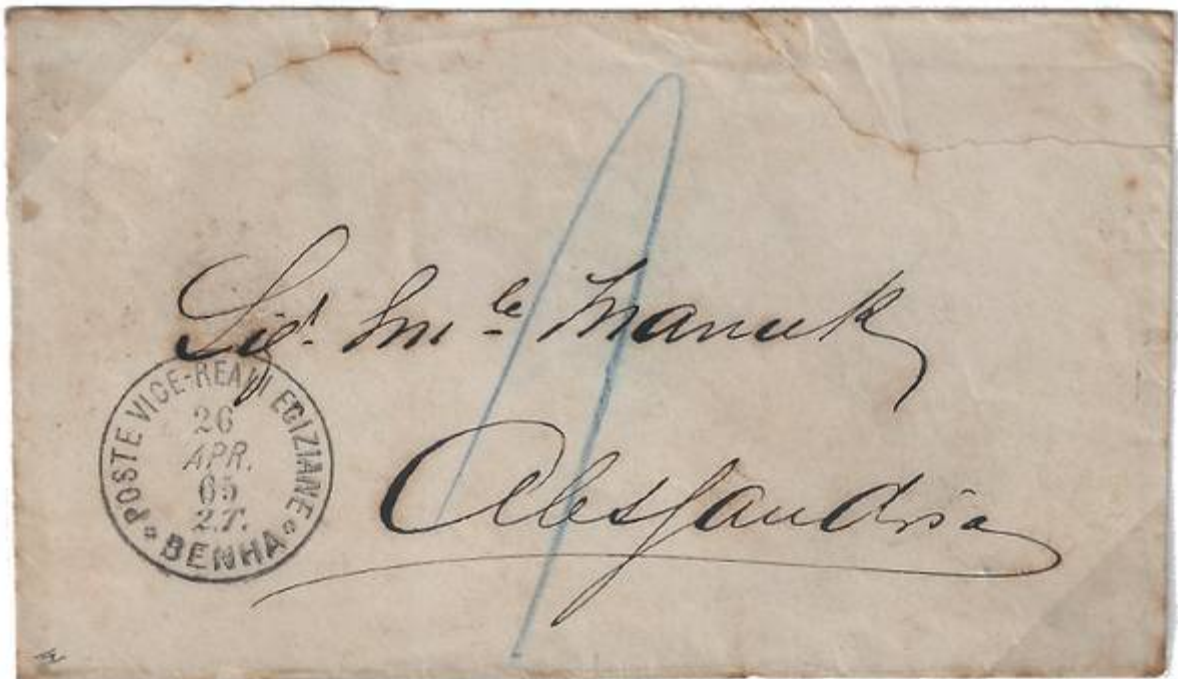 Sigr. Mle Manuk
Alessandria
1
POSTE VICE-REALI EGIZIANE
26
APR.
65
2.T.
BENHA